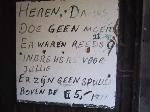 HEREN, DAMES
DOE GEEN MOEITE
ER WAREN REEDS
INBREKERS VOOR
JULLIE
ER ZIJN GEEN SPULLEN
BOVEN DE 5,-